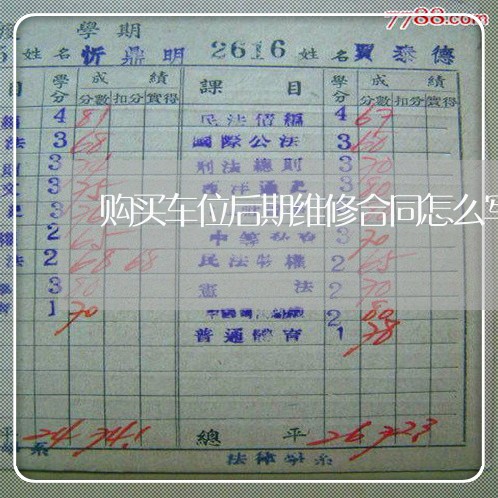 7788.com
學期
姓名 忻鼎明 2616 姓名 賈泰德
目 學分 成績 課目 學分 成績
分數 扣分 實得 分數 扣分 實得
4 81 民法債編 4 67
法 3 68 國際公法 3 60
3 刑法總則 3 70
文 3 75 西洋通史 3
购买车位后期维修合同怎么写
2 65 3 70
法 2 68 68 民法物權 2 65
3 80 憲法 2 70
1 70 2 80
普通體育 1 78
平 24 74.1 總平 26 72.3
系 法律學系